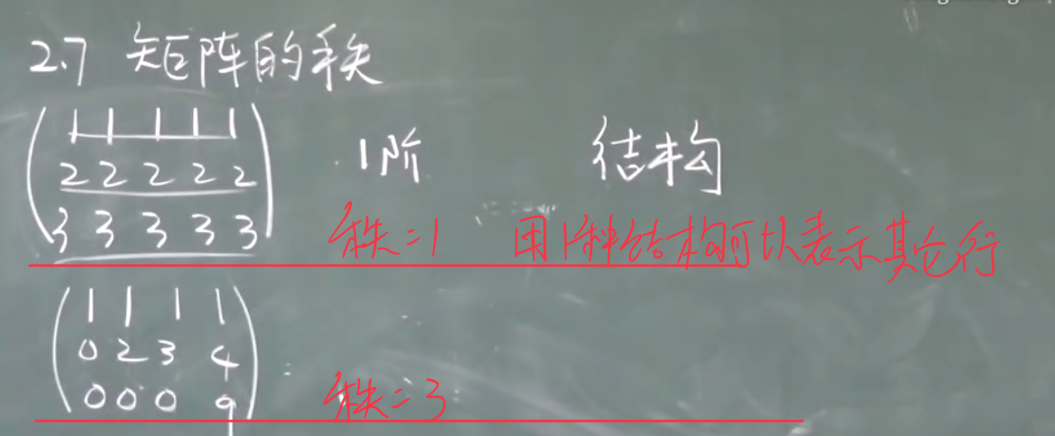 2.7 矩阵的秩
1 1 1 1 1
2 2 2 2 2 1阶 结构
3 3 3 3 3 秩=1 用1种结构可以表示其它行
1 1 1 1
0 2 3 4
0 0 0 9 秩=3